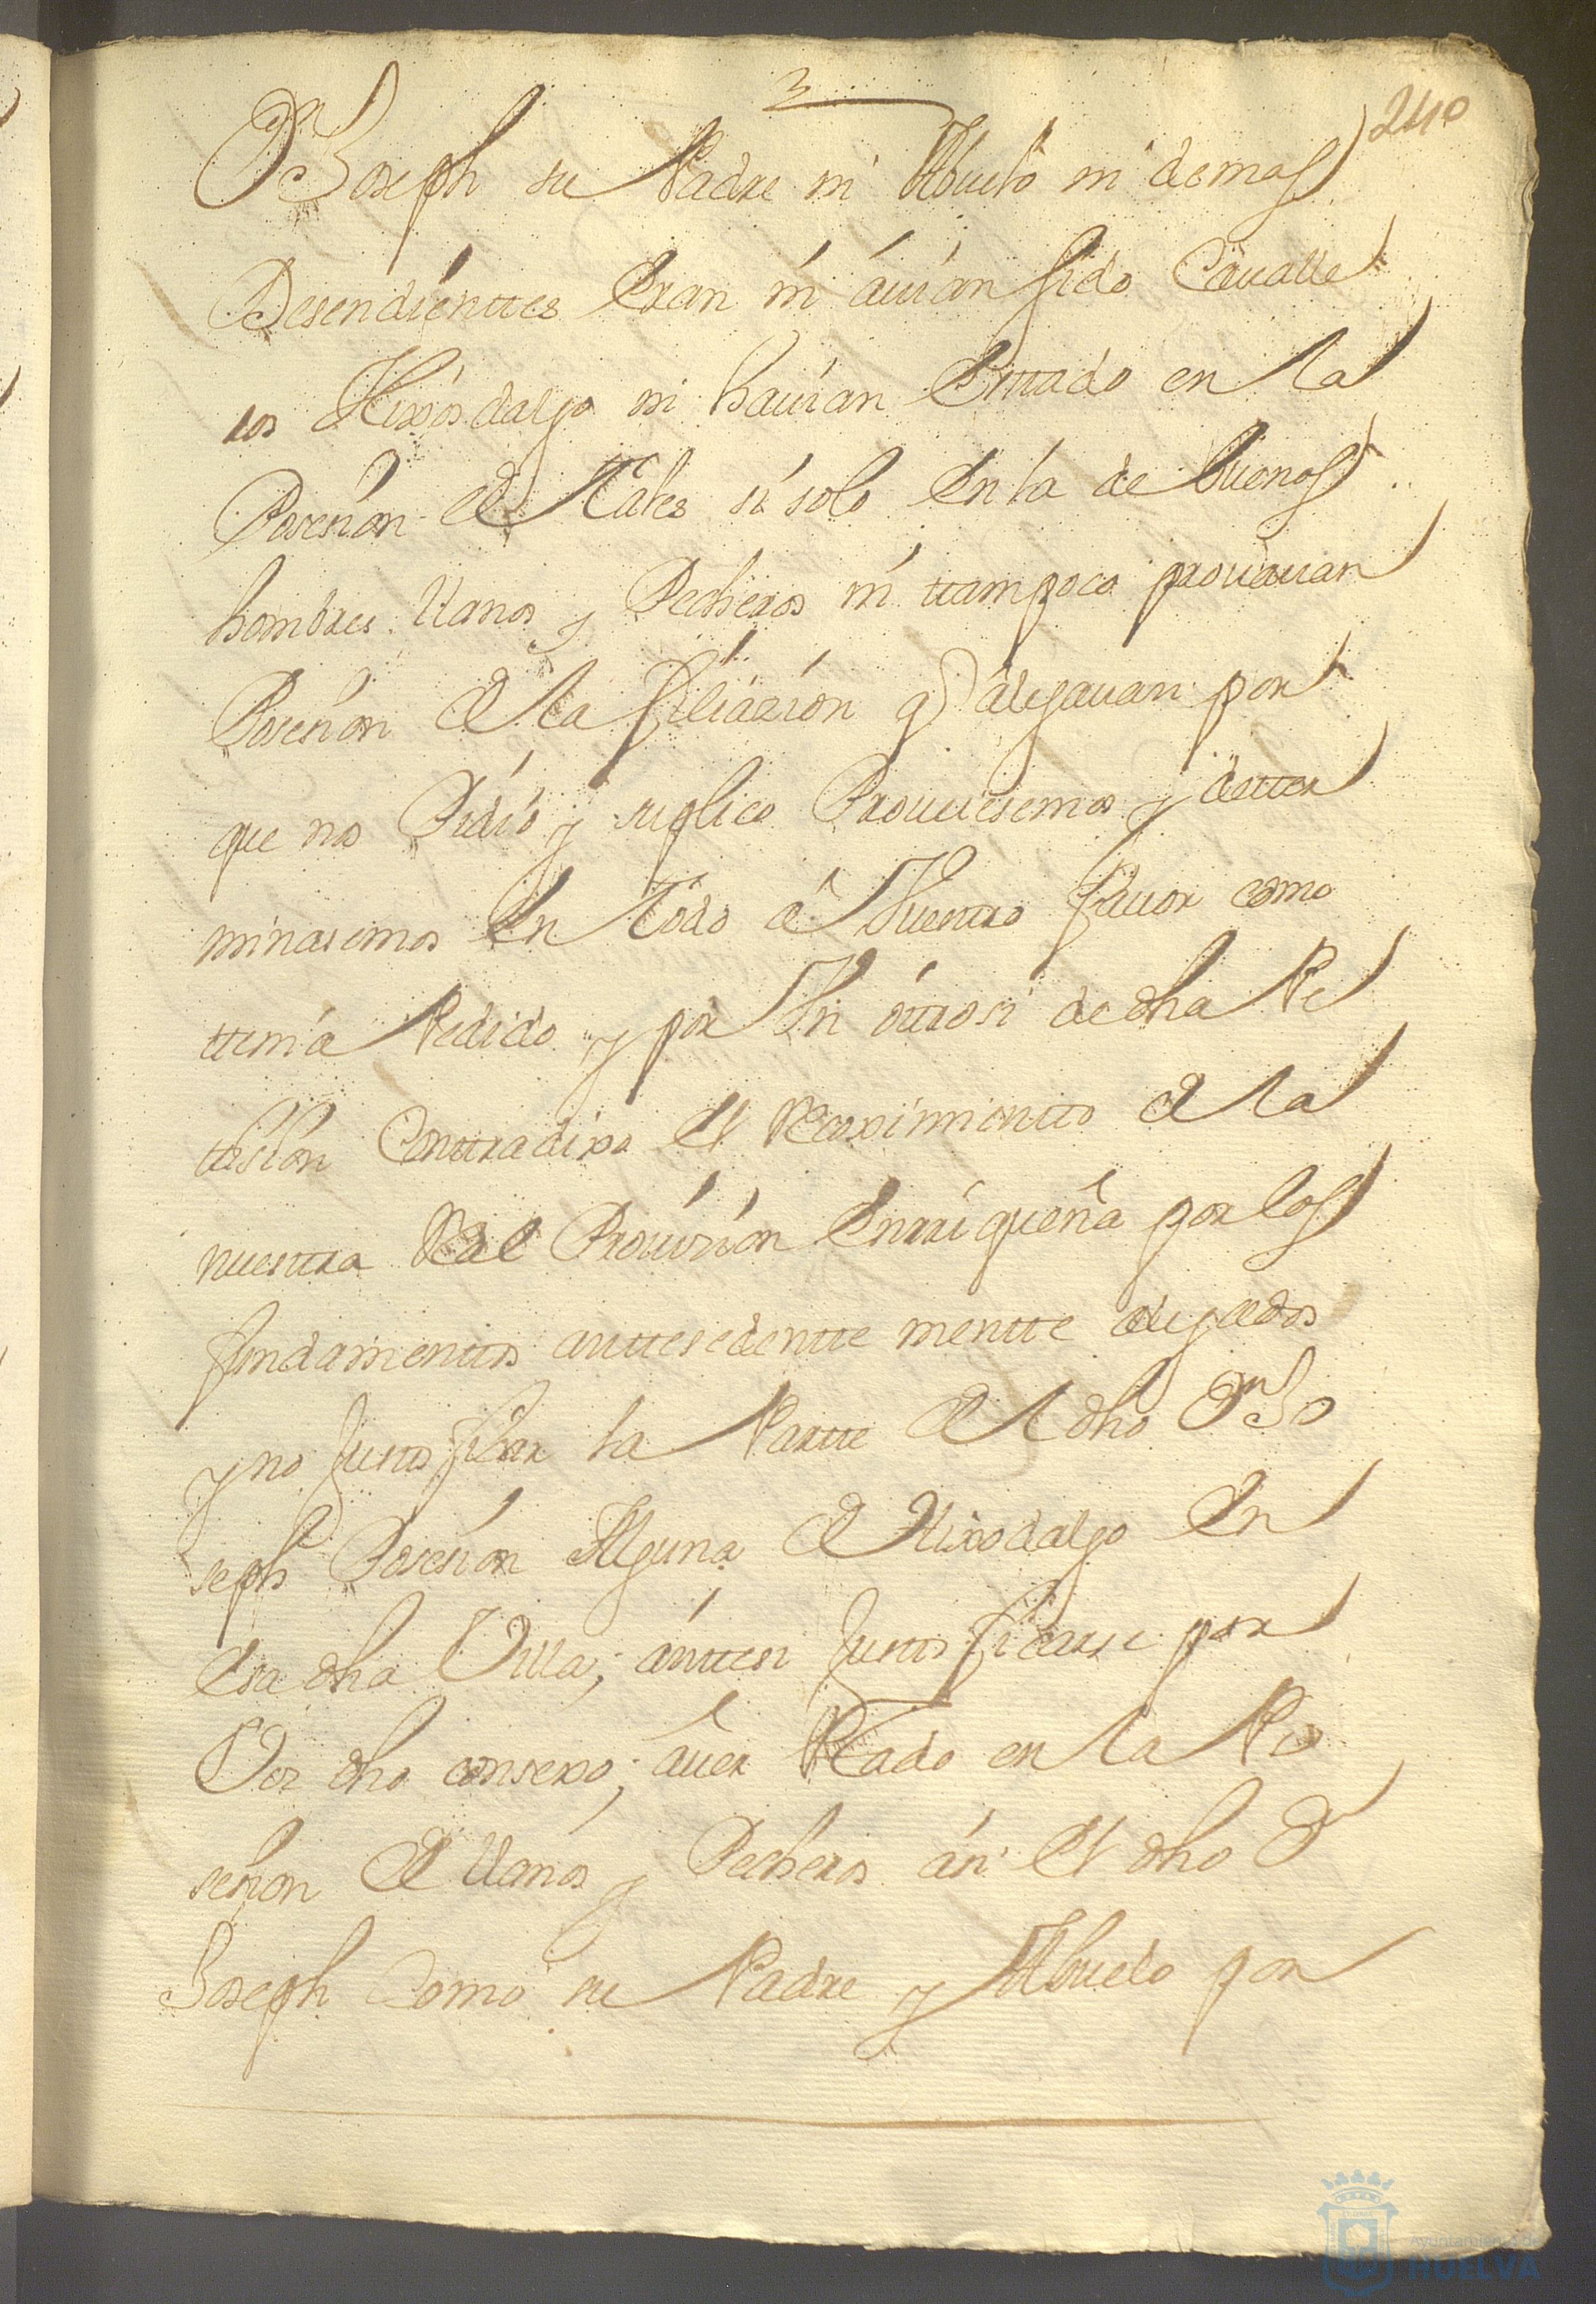 3
240
Dn Joseph su Padre ni Abuelo ni demas
Desendienttes Eran ni auian sido Cavalle
ros Hixosdalgo ni hauian Enttado en la
Posesion de Tales si solo En la de buenos
hombres llanos y Pecheros ni ttampoco prouauan
Posesion de la filiazion q alegauan por
que nos Pidio y suplico Proueiesemos y detter
minasemos En Todo a Vuestro fauor como
ttenia Pedido y por Un ottrosi de dha Pe
tision Conttradixo el Recoximientto de la
nuestra Real Prouision Enrriqueña por los
fundamenttos anttesedentte mentte alegados
y no Justificar la Partte del dho Dn Jo
seph Posesion Alguna de Hixodalgo En
esa dha Villa; anttes si Justificarse por
Vos dho consexo; auer Estado en la Po
sesion de llanos y Pecheros asi el dho Dn
Joseph Como su Padre y Abuelo por
Ayuntamiento de
HUELVA